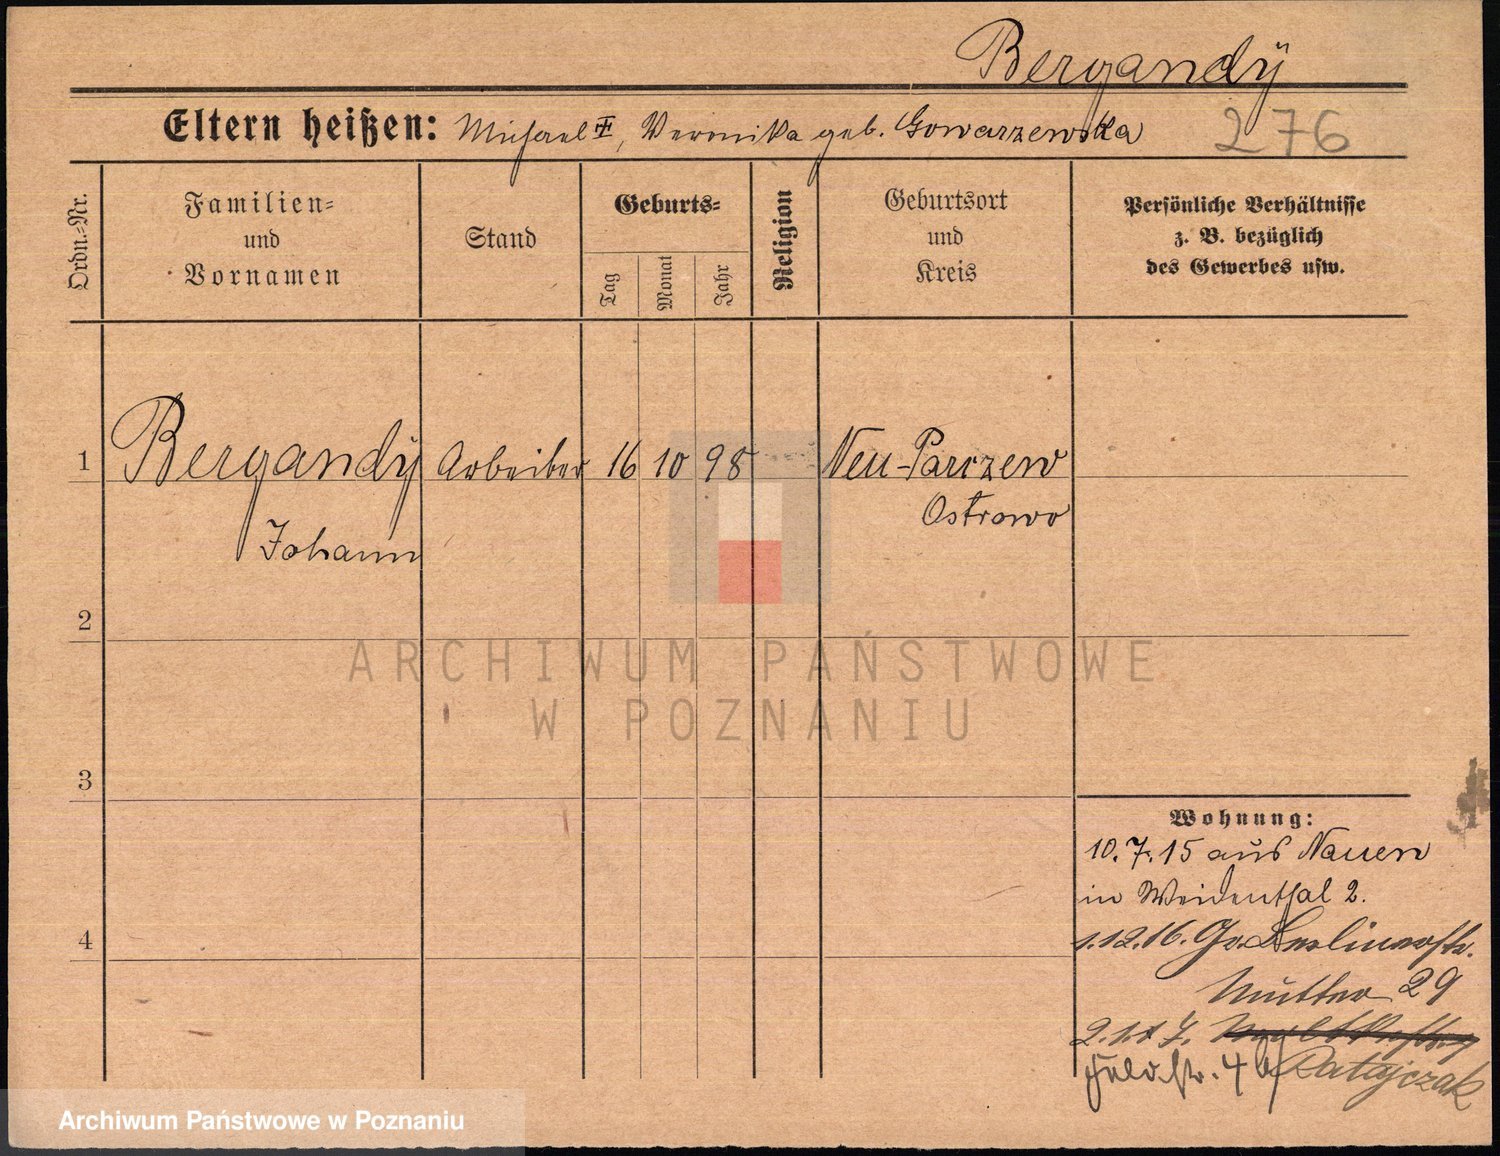 Bergandÿ
Eltern heißen: Michael ✝, Veronika geb. Gowarzewska 276
Ordn.=Nr.
Familien=
und
Vornamen
Stand
Geburts=
Tag
Monat
Jahr
Religion
Geburtsort
und
Kreis
Persönliche Verhältnisse
z. B. bezüglich
des Gewerbes usw.
1 Bergandÿ Arbeiter 16 10 98 Neu-Parczew
Ostrowo
Johann
2
3
4
Wohnung:
10.7.15 aus Nauen
in Weidenthal 2.
1.12.16. Gr. Berlinerstr.
Mutter 29
2.1.17.
Feldstr. 4 b/ Ratajczak
ARCHIWUM PAŃSTWOWE
W POZNANIU
Archiwum Państwowe w Poznaniu